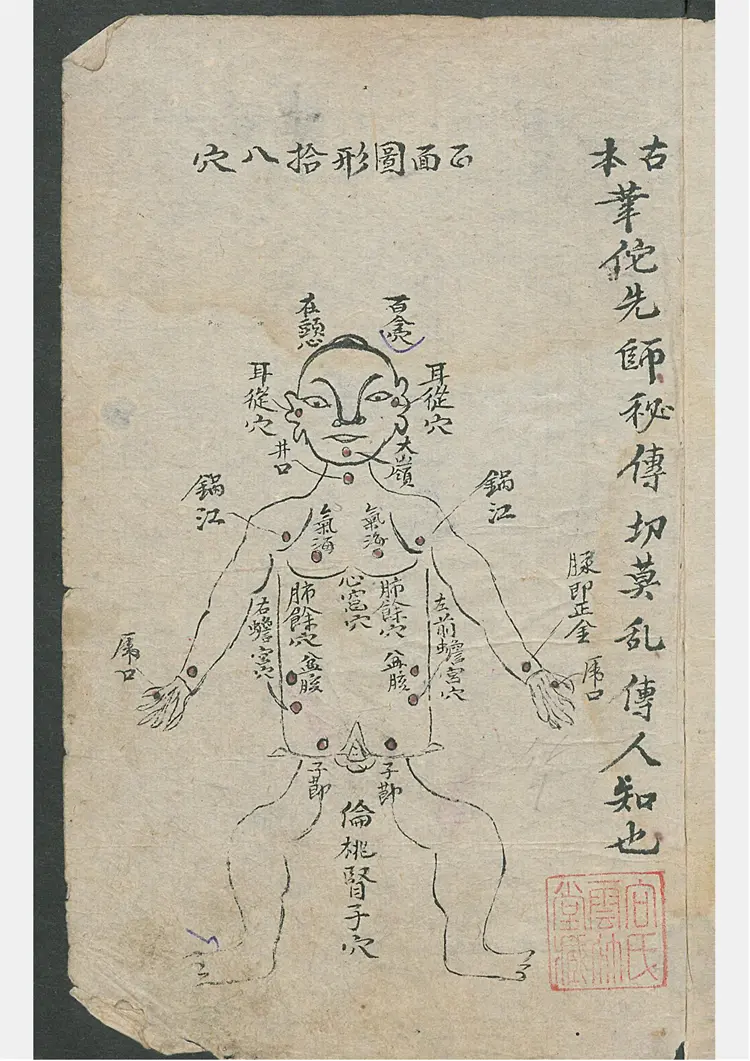 古本華佗先師秘傳切莫乱傳人知也
正面圖形拾八穴
百會
在頭心
耳從穴
耳從穴
大嶺
井口
鍋江
鍋江
氣海
氣海
心窩穴
肺餘穴
肺餘穴
盆胲
盆胲
左前蟾宮穴
右蟾宮穴
脉即正金
虎口
虎口
子節
子節
倫桃腎子穴